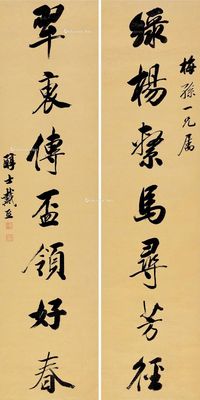 梅孫一兄属
绿楊繫馬尋芳徑
翠裹傳盃領好春
醇士戴熙